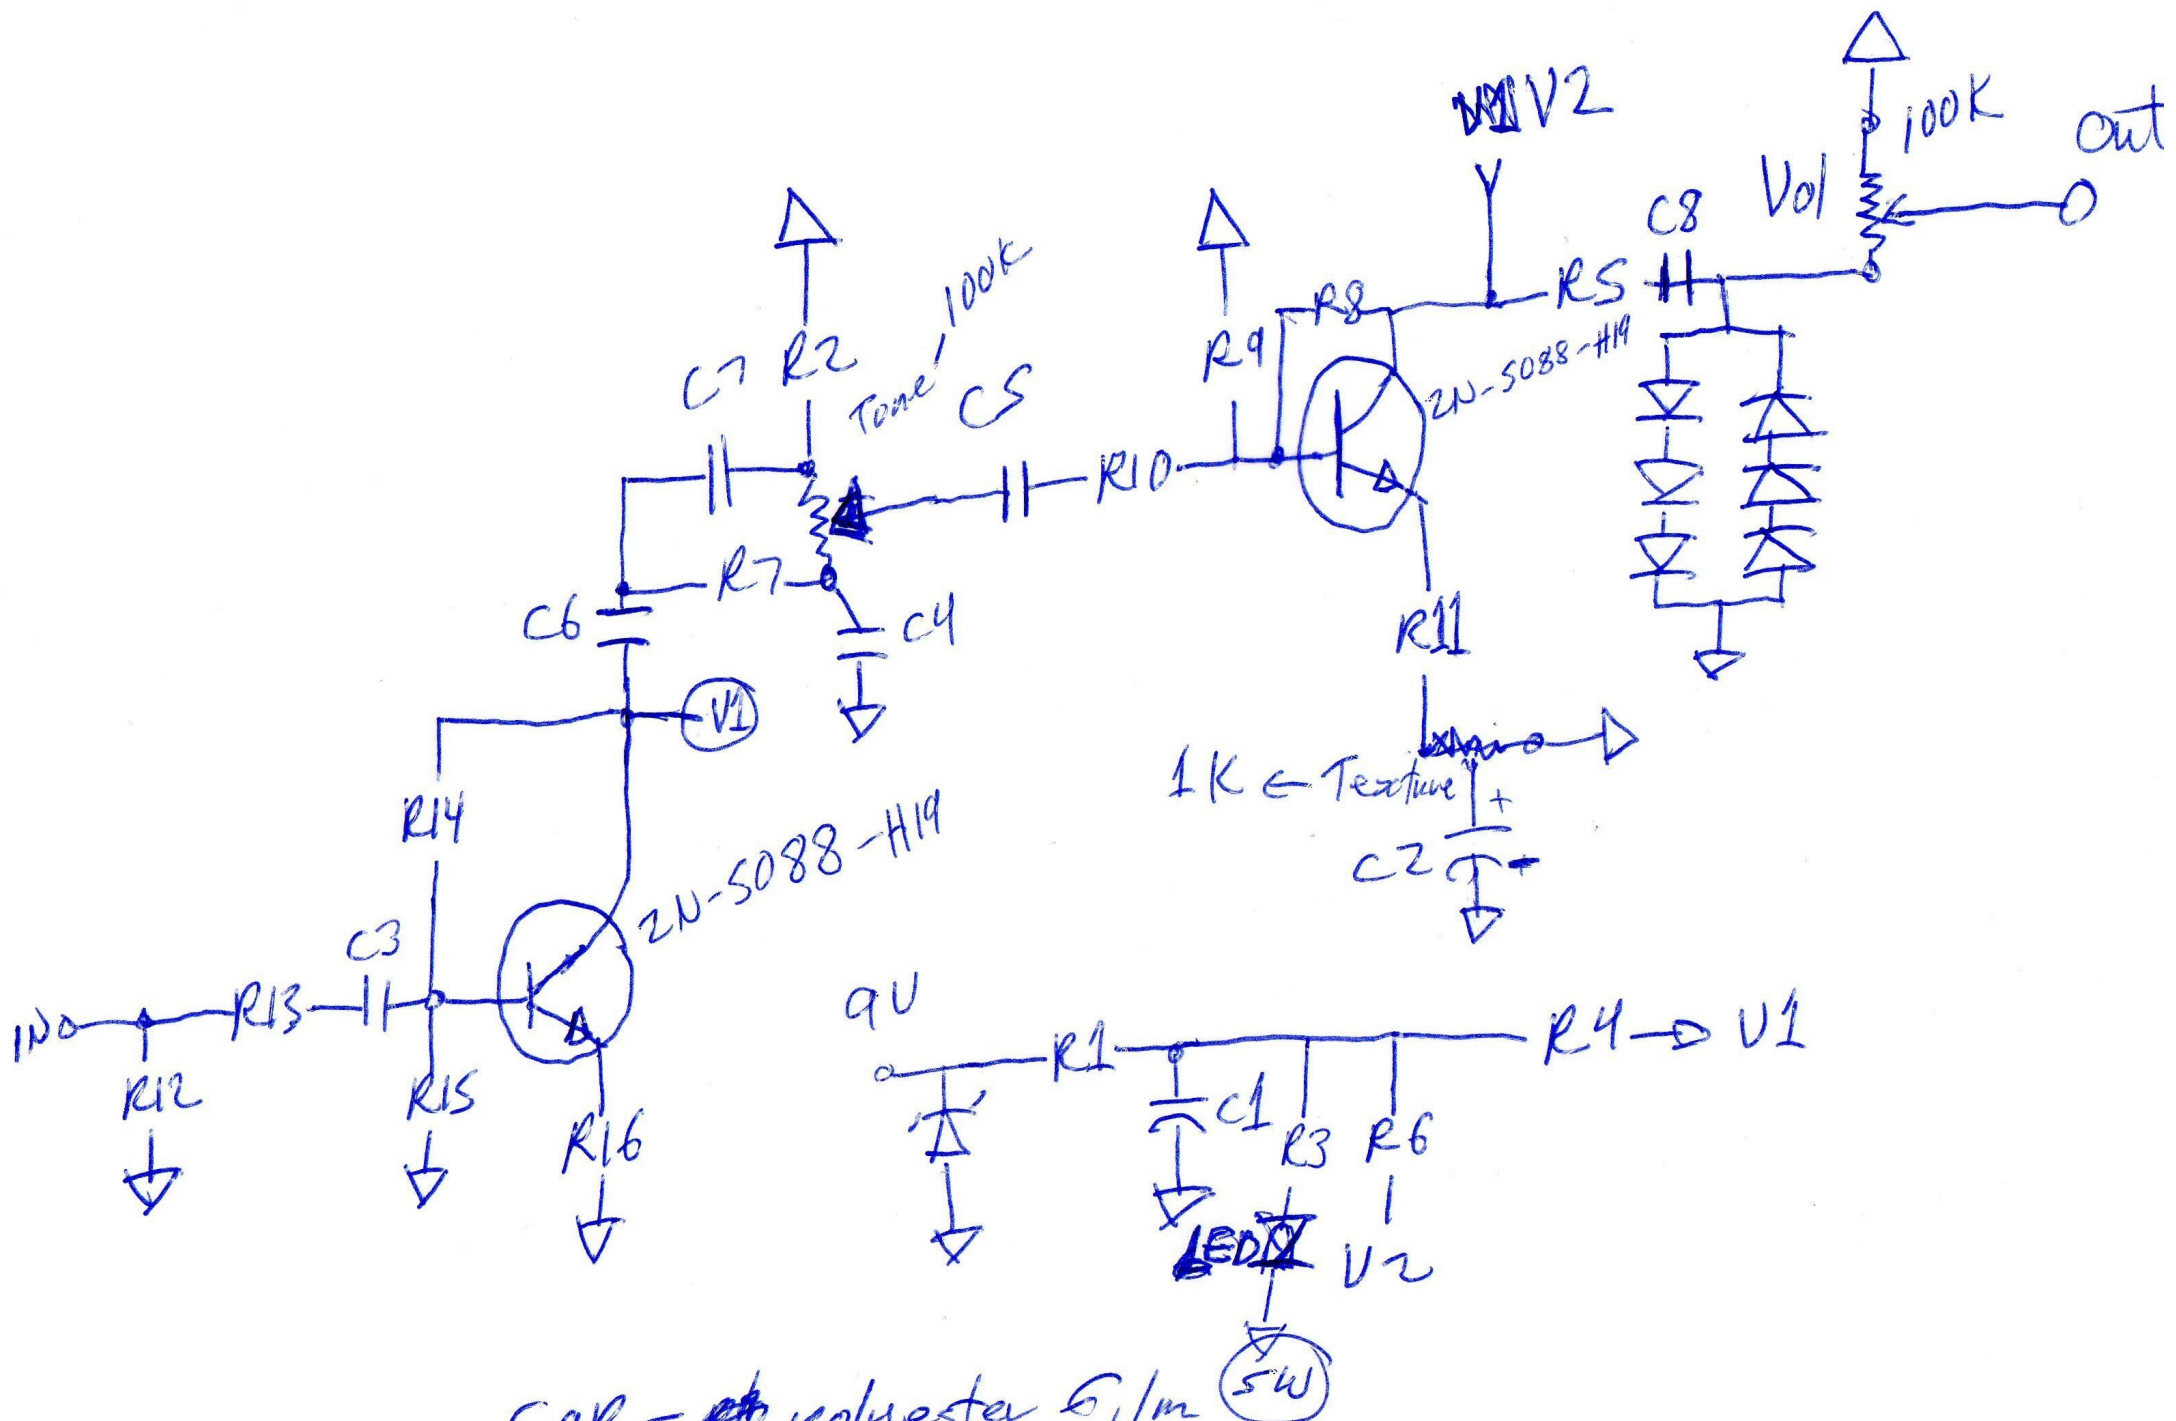 V2
100K
Out
Vol
C8
R5
2N-5088-H19
R8
R9
100K
Tone
C7 R2
C5
R10
R7
C6
C4
V1
R11
1K ← Texture
+
C2
-
R14
2N-5088-H19
C3
IN
R13
R12
R15
R16
9V
R1
R4
V1
C1
R3
R6
LED
V2
SW
CAP - polyester film